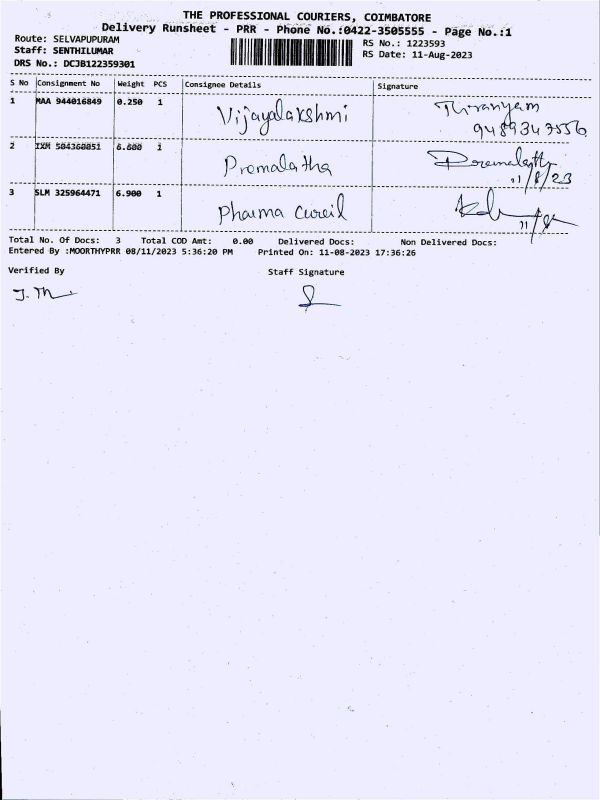 THE PROFESSIONAL COURIERS, COIMBATORE
Delivery Runsheet - PRR - Phone No.:0422-3505555 - Page No.:1
Route: SELVAPUPURAM
RS No.: 1223593
Staff: SENTHILUMAR
RS Date: 11-Aug-2023
DRS No.: DCJB122359301
S No Consignment No Weight PCS Consignee Details Signature
1 MAA 944016849 0.250 1 Vijayalakshmi
9489347556
2 IXM 504360051 1 Premalatha
11/8/23
3 SLM 325964471 6.900 1 Pharma Cureil
11/8
Total No. Of Docs: 3 Total COD Amt: 0.00 Delivered Docs: Non Delivered Docs:
Entered By :MOORTHYPRR 08/11/2023 5:36:20 PM Printed On: 11-08-2023 17:36:26
Verified By Staff Signature